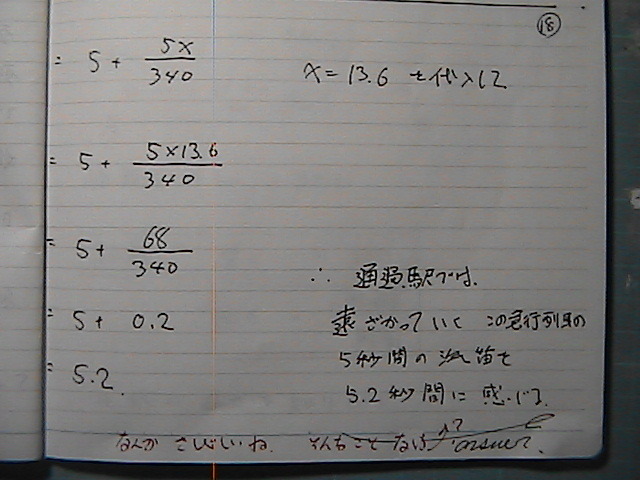 ⑱
= 5 + 5x/340
x = 13.6 を代入して
= 5 + 5×13.6/340
= 5 + 68/340
= 5 + 0.2
= 5.2
∴ 通過駅では、
遠ざかっていく この急行列車の
5秒間の汽笛を
5.2秒間に感じる。
なんか さびしいね. そんなこと ない answer.